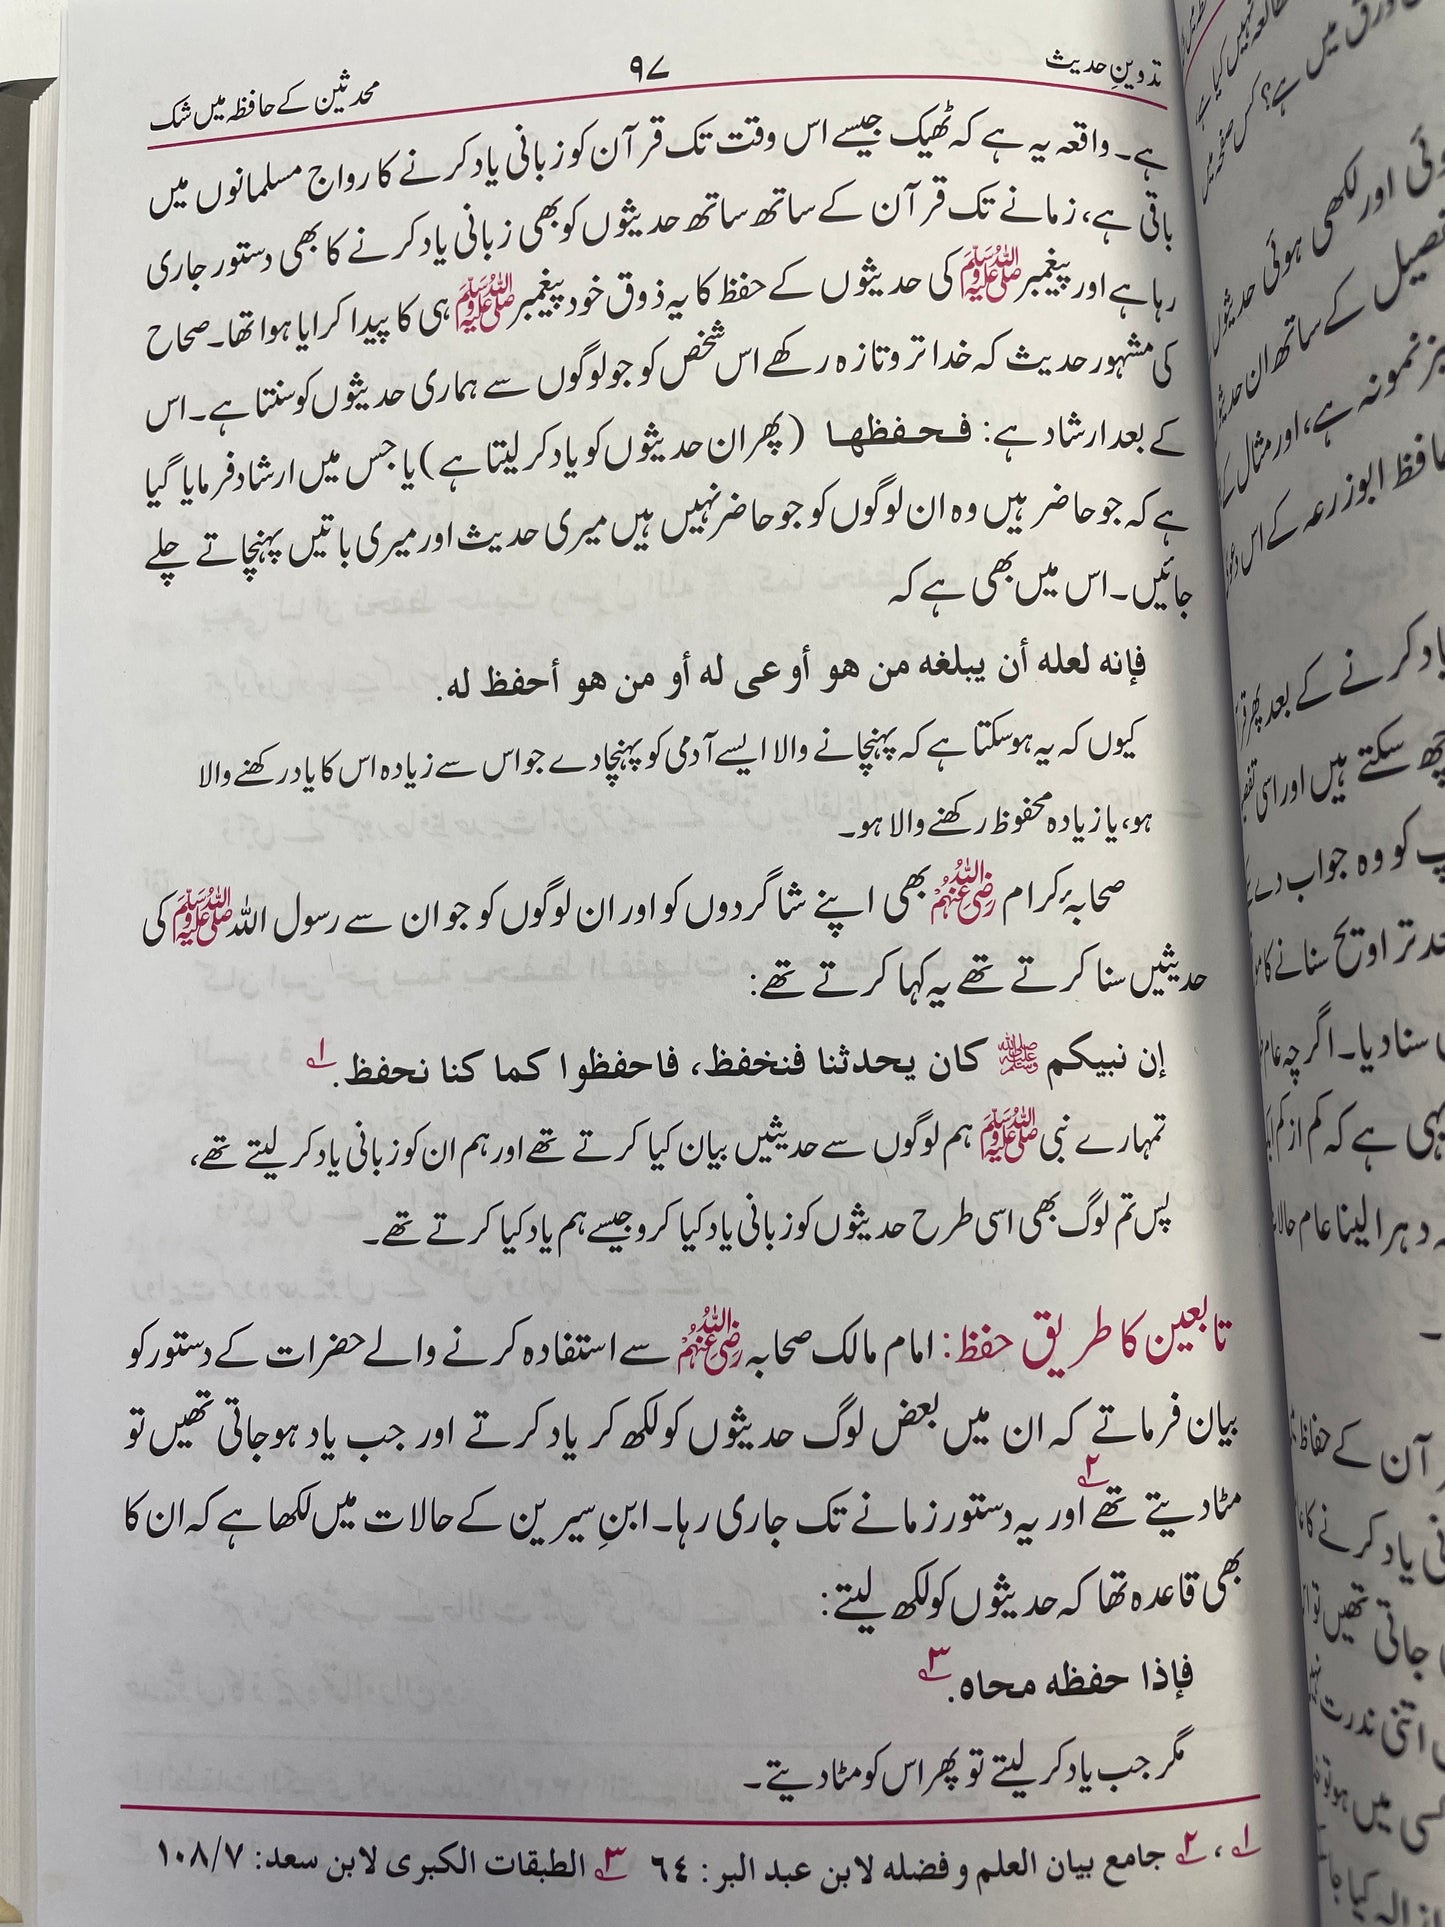 تدوینِ حدیث
۹۷
محدثین کے حافظہ میں شک
ہے۔ واقعہ یہ ہے کہ ٹھیک جیسے اس وقت تک قرآن کو زبانی یاد کرنے کا رواج مسلمانوں میں
باقی ہے، زمانے تک قرآن کے ساتھ ساتھ حدیثوں کو بھی زبانی یاد کرنے کا بھی دستور جاری
رہا ہے اور پیغمبر ﷺ کی حدیثوں کے حفظ کا یہ ذوق خود پیغمبر ﷺ ہی کا پیدا کرایا ہوا تھا۔ صحاح
کی مشہور حدیث کہ خدا تر وتازہ رکھے اس شخص کو جو لوگوں سے ہماری حدیثوں کو سنتا ہے۔ اس
کے بعد ارشاد ہے: فـحـفظهـا (پھر ان حدیثوں کو یاد کر لیتا ہے) یا جس میں ارشاد فرمایا گیا
ہے کہ جو حاضر ہیں وہ ان لوگوں کو جو حاضر نہیں ہیں میری حدیث اور میری باتیں پہنچاتے چلے
جائیں۔ اس میں بھی ہے کہ
فإنه لعله أن يبلغه من هو أوعى له أو من هو أحفظ له.
کیوں کہ یہ ہوسکتا ہے کہ پہنچانے والا ایسے آدمی کو پہنچادے جو اس سے زیادہ اس کا یاد رکھنے والا
ہو، یا زیادہ محفوظ رکھنے والا ہو۔
صحابۂ کرام رضی اللہ عنہم بھی اپنے شاگردوں کو اور ان لوگوں کو جو ان سے رسول اللہ ﷺ کی
حدیثیں سنا کرتے تھے یہ کہا کرتے تھے:
إن نبيكم ﷺ كان يحدثنا فنخفظ، فاحفظوا كما كنا نحفظ. ۱؎
تمہارے نبی ﷺ ہم لوگوں سے حدیثیں بیان کیا کرتے تھے اور ہم ان کو زبانی یاد کر لیتے تھے،
پس تم لوگ بھی اسی طرح حدیثوں کو زبانی یاد کیا کرو جیسے ہم یاد کیا کرتے تھے۔
تابعین کا طریق حفظ: امام مالک صحابہ رضی اللہ عنہم سے استفادہ کرنے والے حضرات کے دستور کو
بیان فرماتے کہ ان میں بعض لوگ حدیثوں کو لکھ کر یاد کرتے اور جب یاد ہوجاتی تھیں تو
مٹادیتے تھے ۲؎ اور یہ دستور زمانے تک جاری رہا۔ ابنِ سیرین کے حالات میں لکھا ہے کہ ان کا
بھی قاعدہ تھا کہ حدیثوں کو لکھ لیتے:
فإذا حفظه محاه. ۳؎
مگر جب یاد کر لیتے تو پھر اس کو مٹادیتے۔
۱؎، ۲؎ جامع بيان العلم وفضله لابن عبد البر: ٦٤ ۳؎ الطبقات الكبرى لابن سعد: ۱۰۸/۷